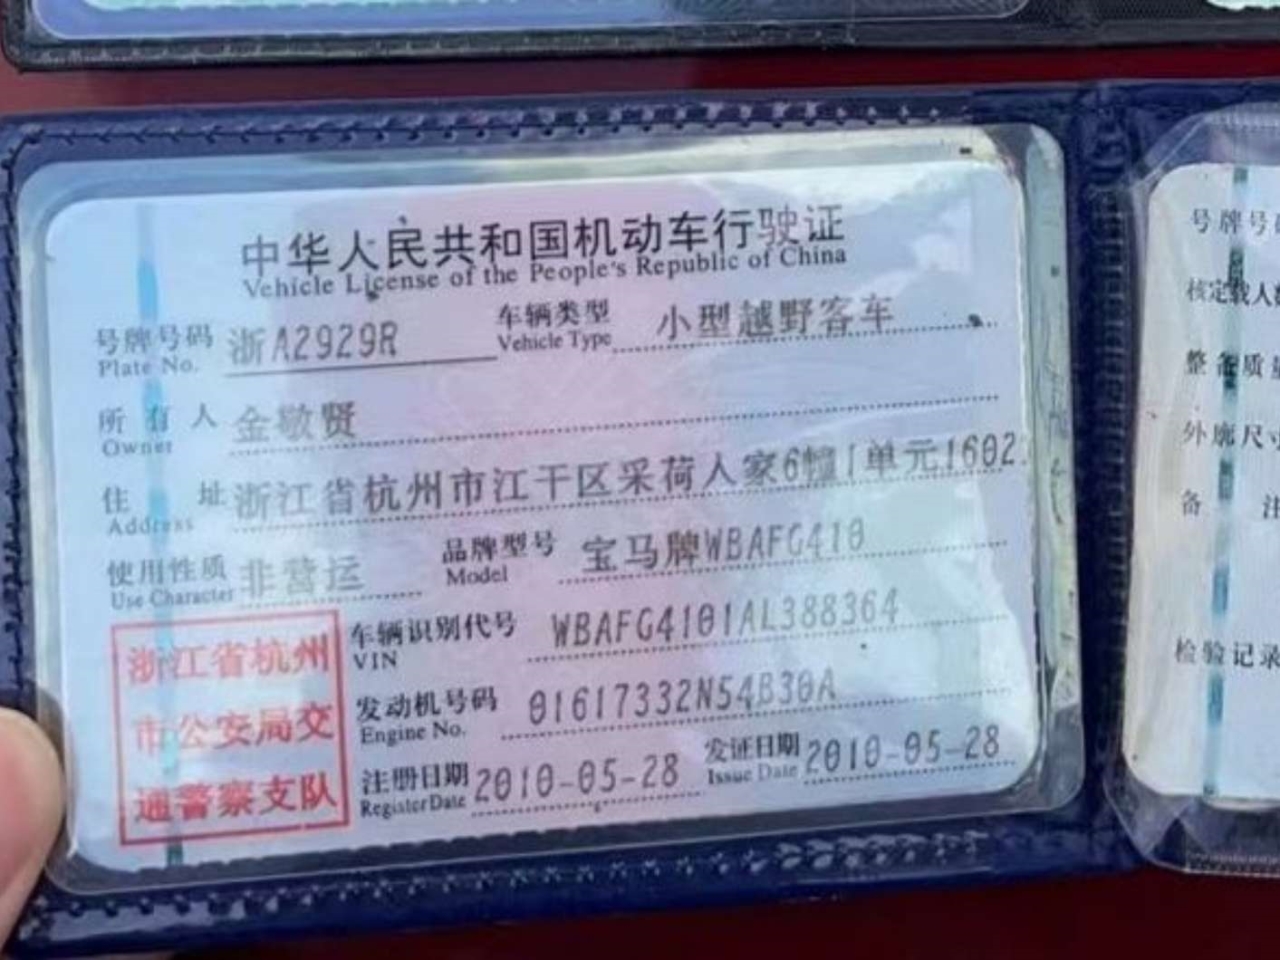 中华人民共和国机动车行驶证
Vehicle License of the People's Republic of China
号牌号码 浙A2929R 车辆类型 小型越野客车
Plate No. Vehicle Type
所有人 金敬贤
Owner
住址 浙江省杭州市江干区采荷人家6幢1单元1602
Address
使用性质 非营运 品牌型号 宝马牌WBAFG410
Use Character Model
车辆识别代号 WBAFG4101AL388364
VIN
发动机号码 01617332N54B30A
Engine No.
注册日期 2010-05-28 发证日期 2010-05-28
Register Date Issue Date
浙江省杭州
市公安局交
通警察支队
号牌号
核定载人
整备质量
外廓尺寸
备注
检验记录